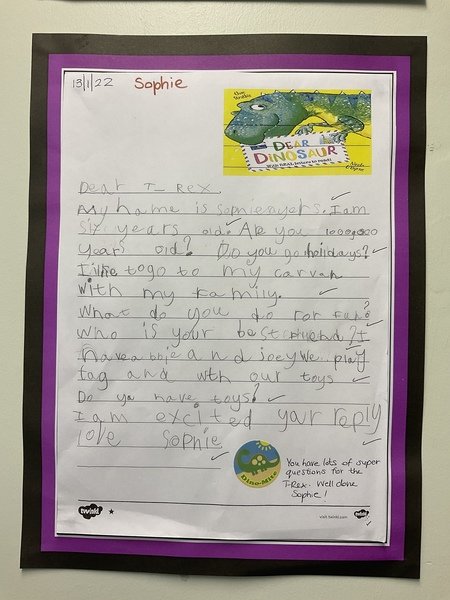 13/1/22 Sophie
Chae Strathie
DEAR
DINOSAUR
With REAL letters to read!
Nicola O'Byrne
Dear T-Rex.
My name is sophie myers. I am
Six years old. Are you 1000000
years old? Do you go holidays?
I like to go to my carvan
with my family.
What do you do for fun?
Who is your best friend? I
have abbie and joey We play
tag and with our toys
Do you have toys?
I am excited your reply
love Sophie
Dino-Mite
You have lots of super
questions for the
T-Rex. Well done
Sophie!
twinkl
visit twinkl.com
twinkl